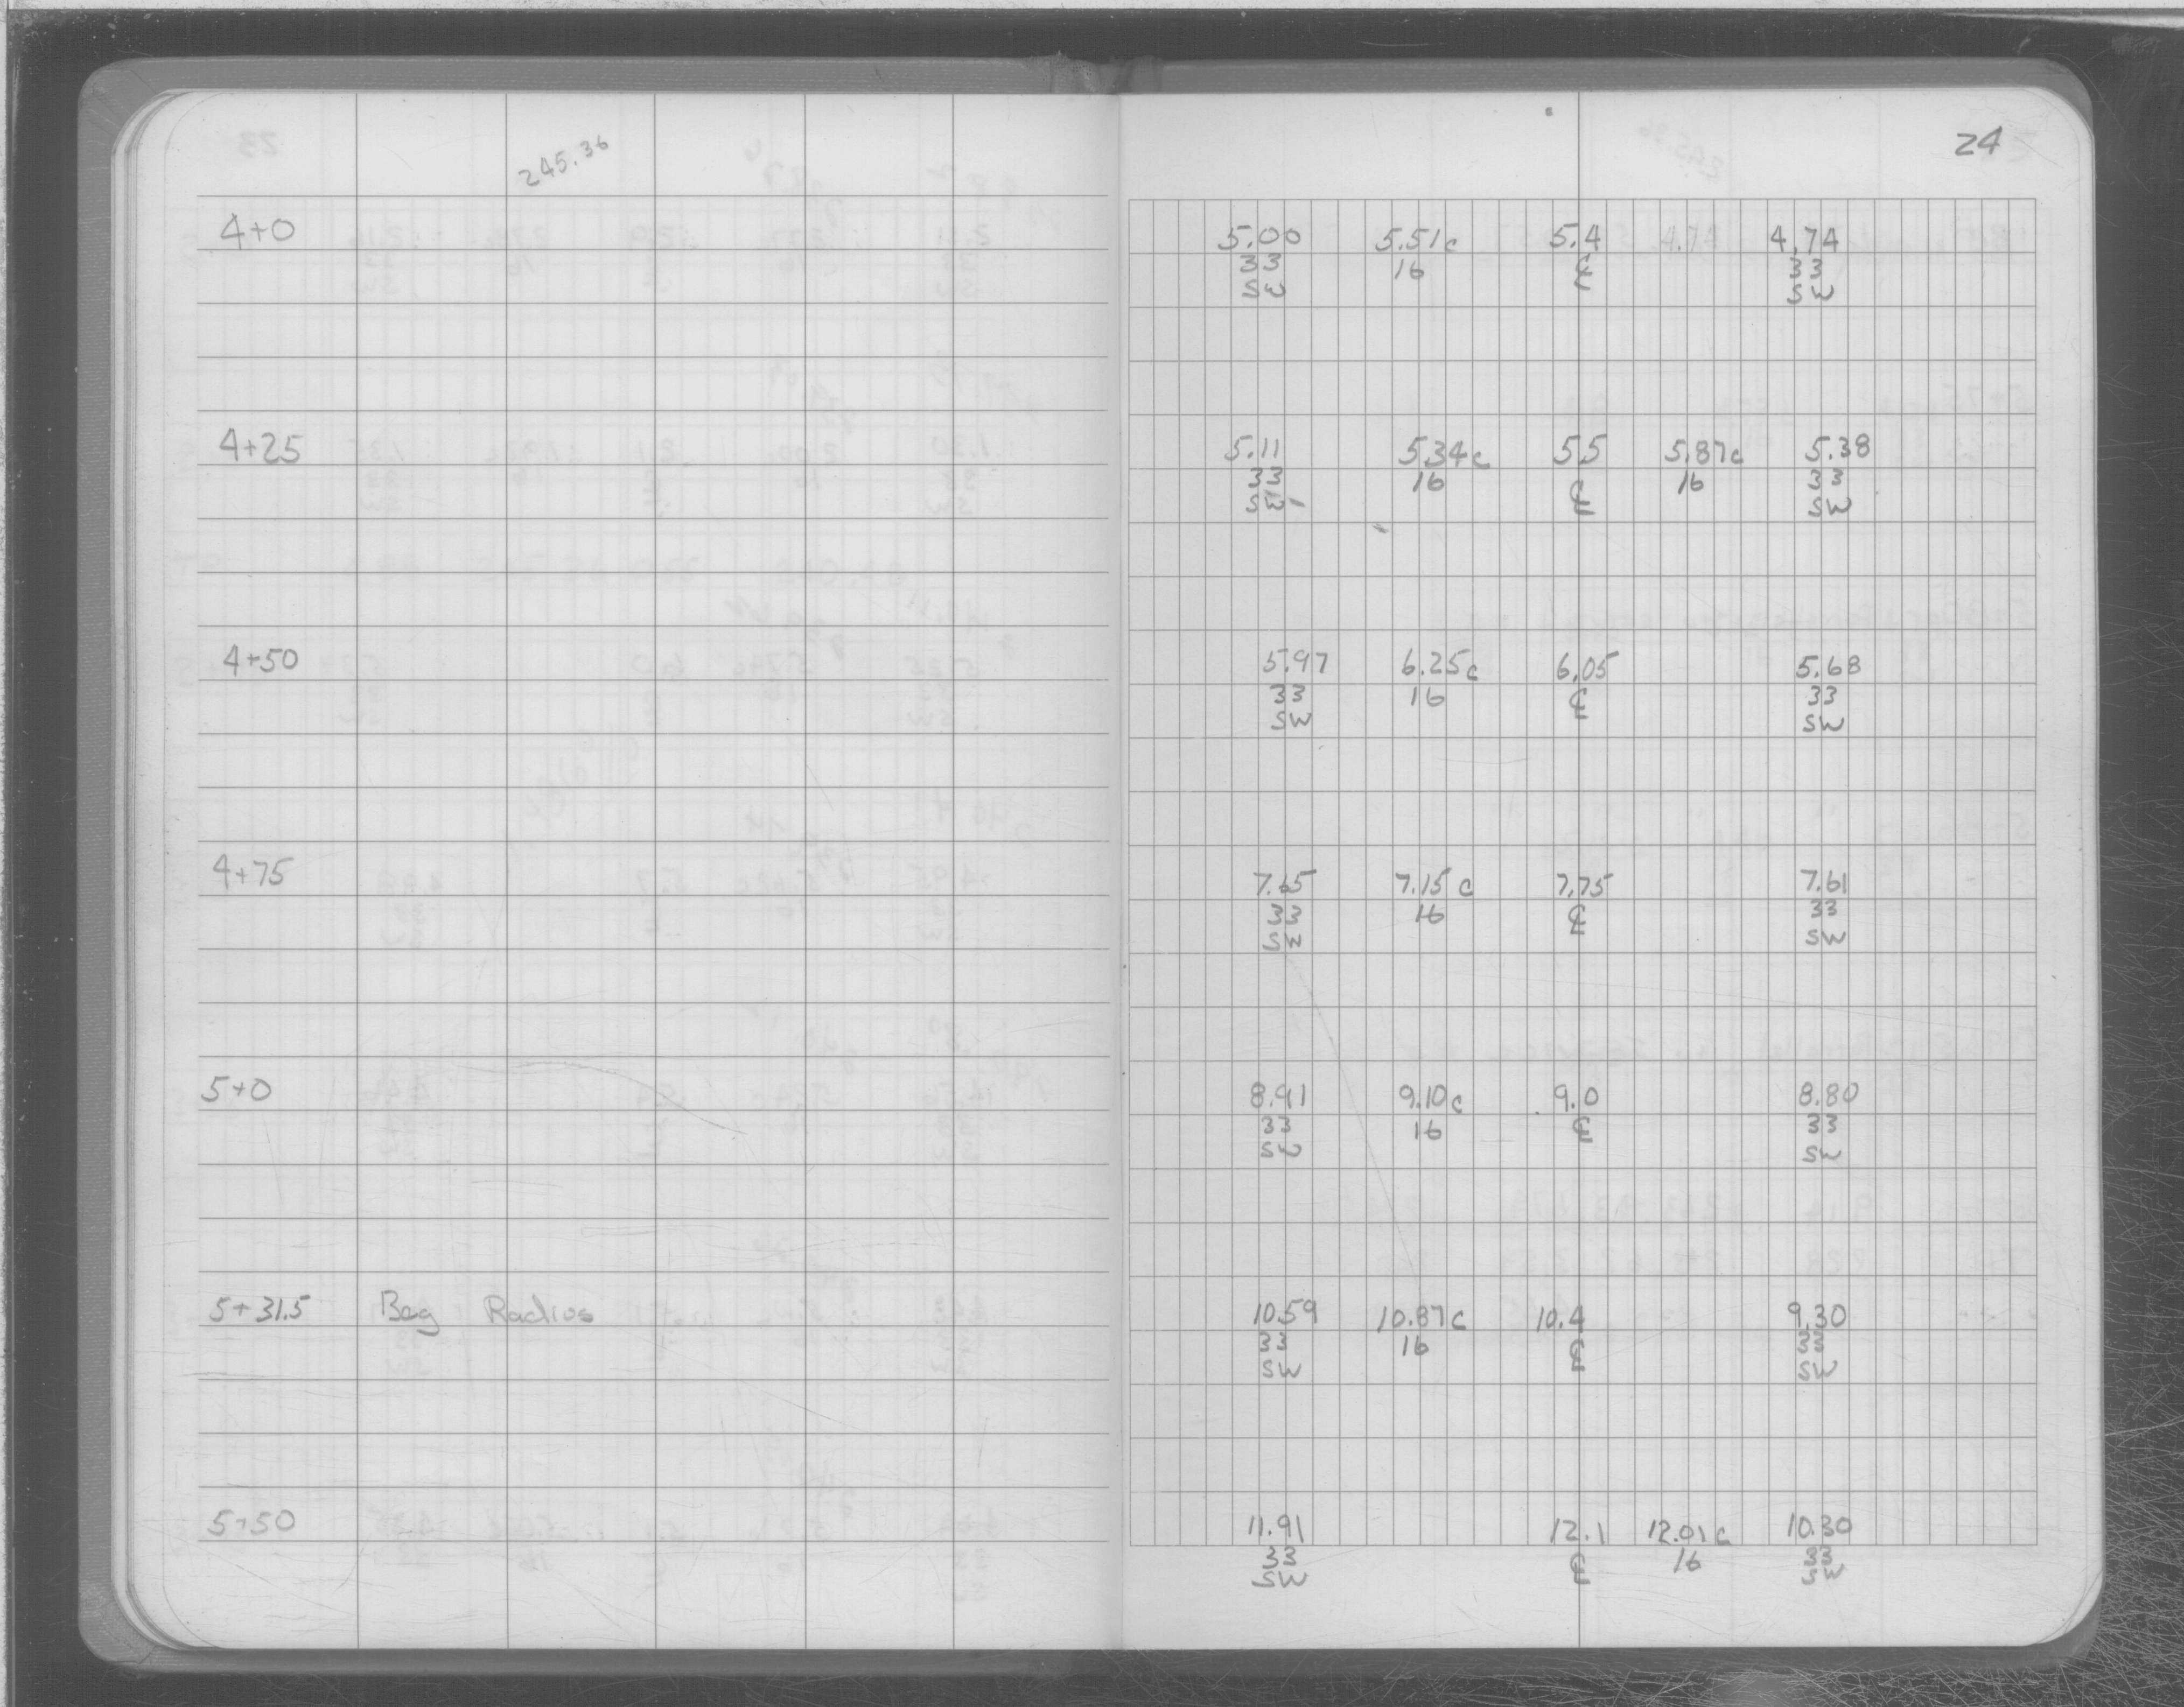 24
245.36
4+0 5.00 5.51c 5.4 4.74 4.74
33 16 ℄ 33
SW SW
4+25 5.11 5.34c 5.5 5.87c 5.38
33 16 ℄ 16 33
SW SW
4+50 5.97 6.25c 6.05 5.68
33 16 ℄ 33
SW SW
4+75 7.15c 7.75 7.61
33 16 ℄ 33
SW SW
5+0 8.91 9.10c 9.0 8.80
33 16 ℄ 33
SW SW
5+31.5 Beg Radius 10.59 10.87c 10.4 9.30
33 16 ℄ 33
SW SW
5+50 11.91 12.1 12.01c 10.30
33 ℄ 16 33
SW SW